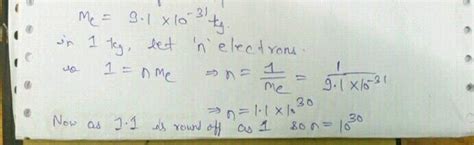 Me = 9.1 × 10⁻³¹ kg.
in 1 kg, let 'n' electrons.
so 1 = n me ⇒ n = 1/me = 1/9.1 × 10⁻³¹
⇒ n = 1.1 × 10³⁰
Now as 1.1 is round off as 1 so n = 10³⁰